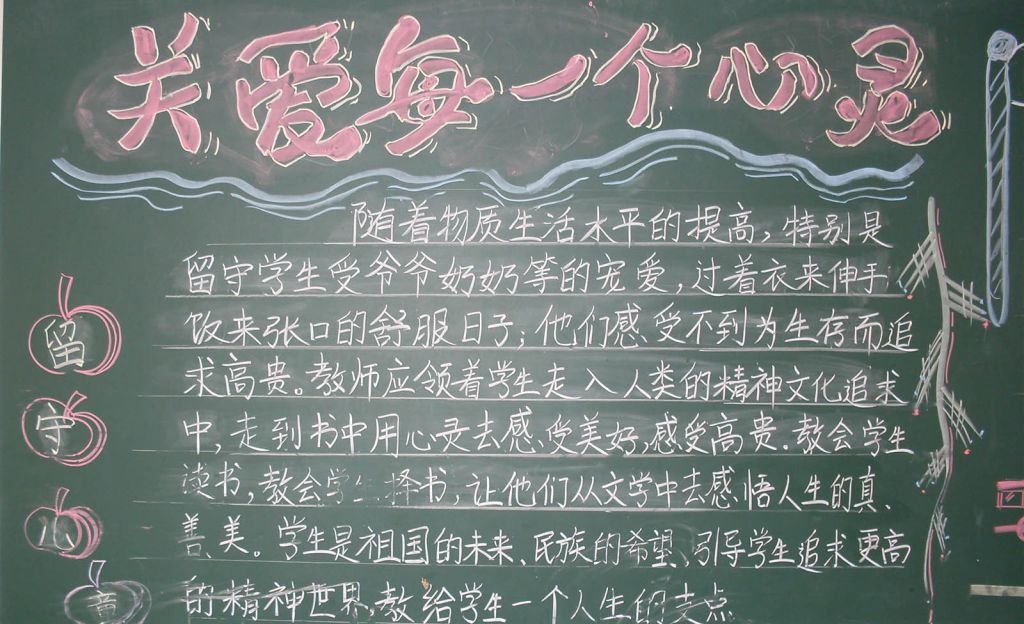 关爱每一个心灵
随着物质生活水平的提高,特别是
留守学生受爷爷奶奶等的宠爱,过着衣来伸手
饭来张口的舒服日子;他们感受不到为生存而追
求高贵。教师应领着学生走入人类的精神文化追求
中,走到书中用心灵去感受美好,感受高贵.教会学生
读书,教会学生择书,让他们从文学中去感悟人生的真、
善、美。学生是祖国的未来、民族的希望、引导学生追求更高
的精神世界,教给学生一个人生的支点
留
守
儿
童